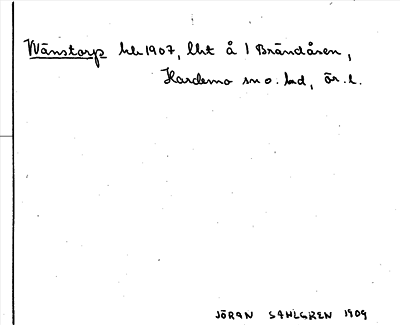 Wänstorp hh 1907, lht å 1 Brändåsen,
Hardemo sn o. hd, ör. l.
JÖRAN SAHLGREN 1909